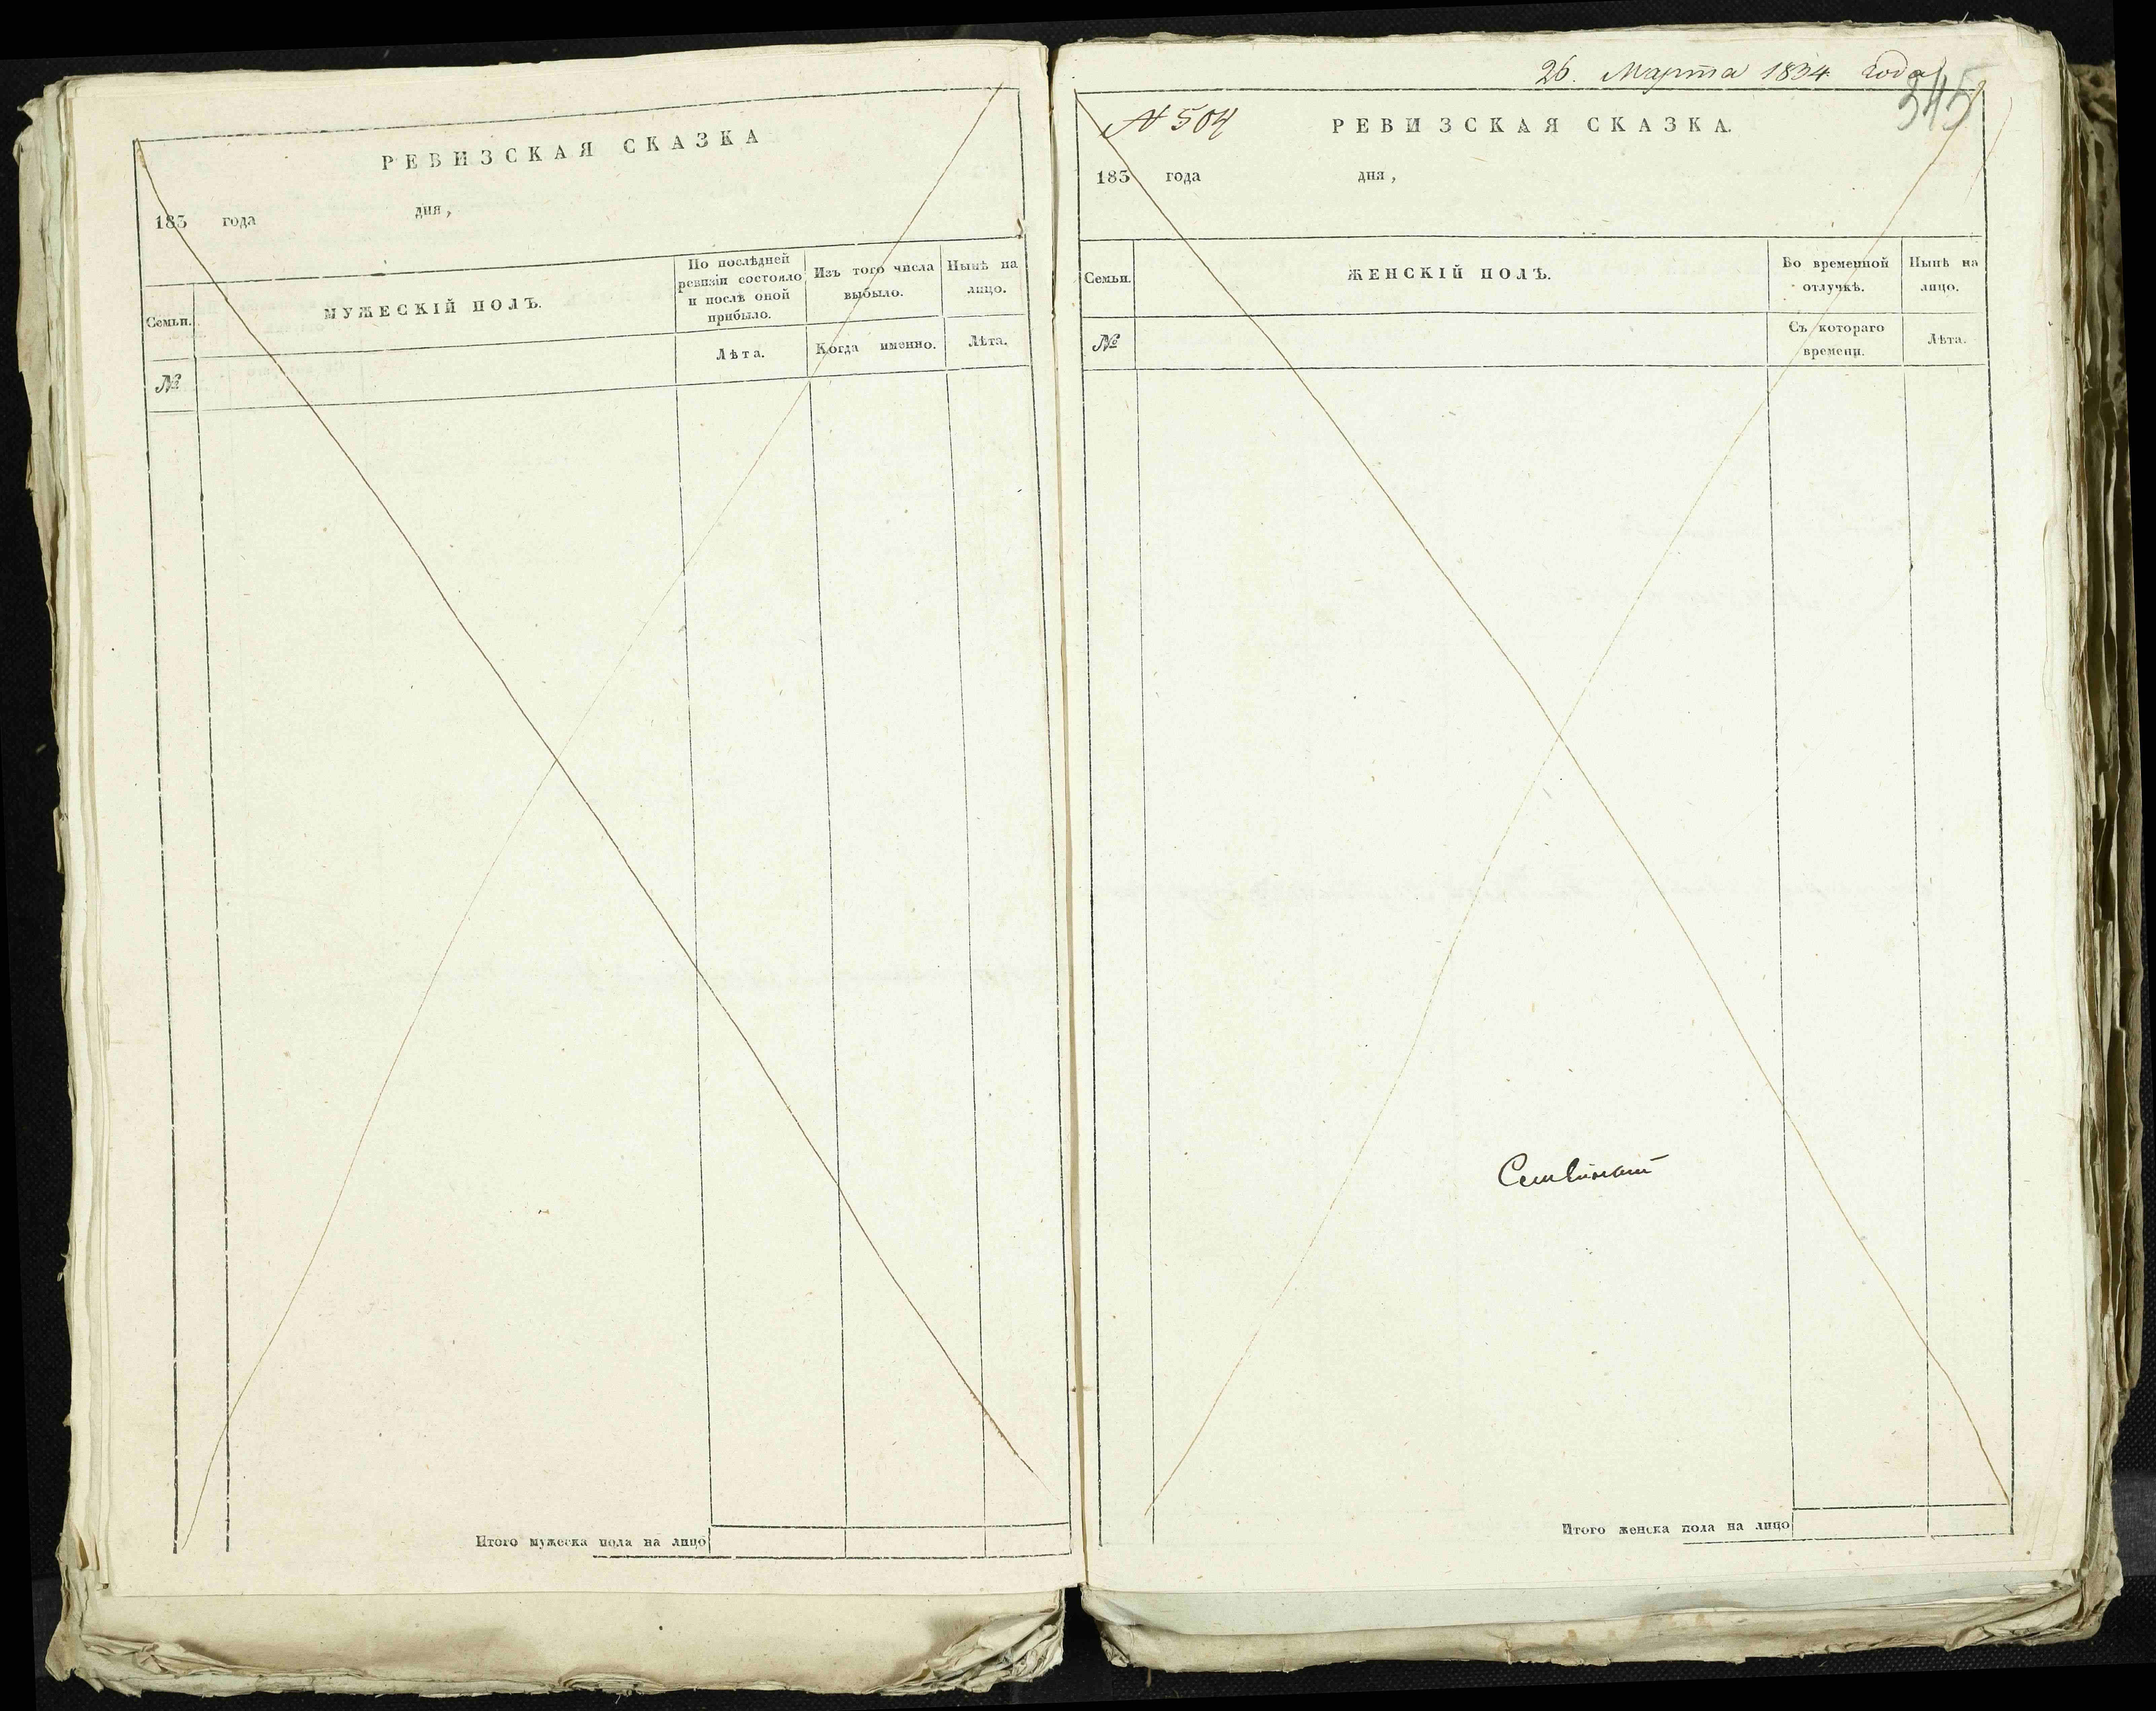 РЕВИЗСКАЯ СКАЗКА
183 года дня,
Семьи.
МУЖЕСКІЙ ПОЛЪ.
По послѣдней
ревизіи состояло
и послѣ оной
прибыло.
Изъ того числа
выбыло.
Нынѣ на
лицо.
№
Лѣта.
Когда именно.
Лѣта.
Итого мужеска пола на лицо
26. Марта 1834 года
345
№ 504
РЕВИЗСКАЯ СКАЗКА.
183 года дня,
Семьи.
ЖЕНСКІЙ ПОЛЪ.
Во временной
отлучкѣ.
Нынѣ на
лицо.
№
Съ котораго
времени.
Лѣта.
Итого женска пола на лицо